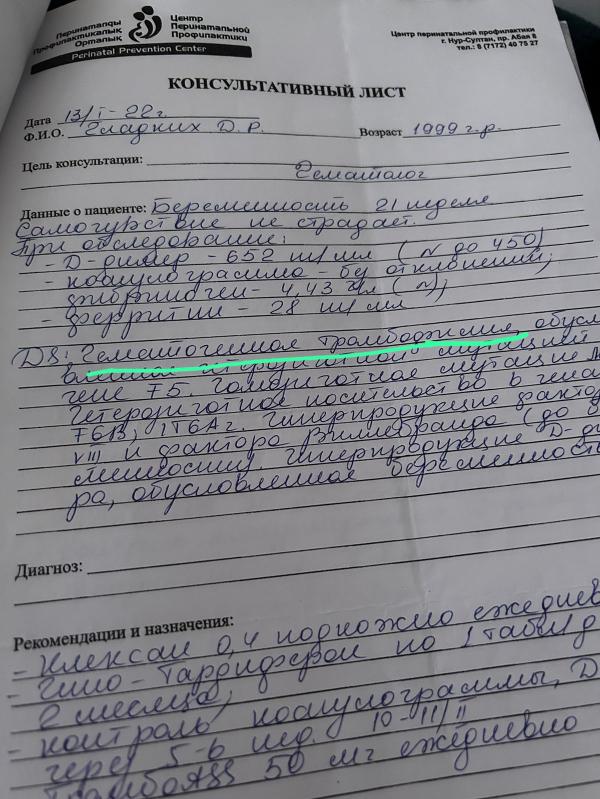 Перинаталды
Профилактикалық
Орталық
Центр
Перинатальной
Профилактики
Perinatal Prevention Center
Центр перинатальной профилактики
г. Нур-Султан, пр. Абая 8
тел.: 8 (7172) 40 75 27
КОНСУЛЬТАТИВНЫЙ ЛИСТ
Дата 13/I-22г.
Ф.И.О. Гладких Д.Р. Возраст 1999 г.р.
Цель консультации:
Гематолог
Данные о пациенте: Беременность 21 неделя
Самочувствие не страдает.
При обследовании:
- D-димер - 652 нг/мл (N до 450)
- коагулограмма - без отклонений,
фибриноген - 4,43 г/л (N);
- ферритин - 28 нг/мл
DS: Гематогенная тромбофилия, обусл
гетерозиготной мутацией
гене F5. Гомозиготная мутация
Гетерозиготное носительство в генах
ITGA2. Гиперпродукция фактор
VIII и фактора Виллебранда (до
Гиперпродукция D-ди
ра, обусловленная беременность
Диагноз:
Рекомендации и назначения:
- Клексан 0,4 подкожно ежеднев
- Гино-Тардиферон по 1 табл
2 месяца;
- контроль коагулограммы, D
через 5-6 нед. 10-11/II
ТромбоАSS 50 мг ежедневно